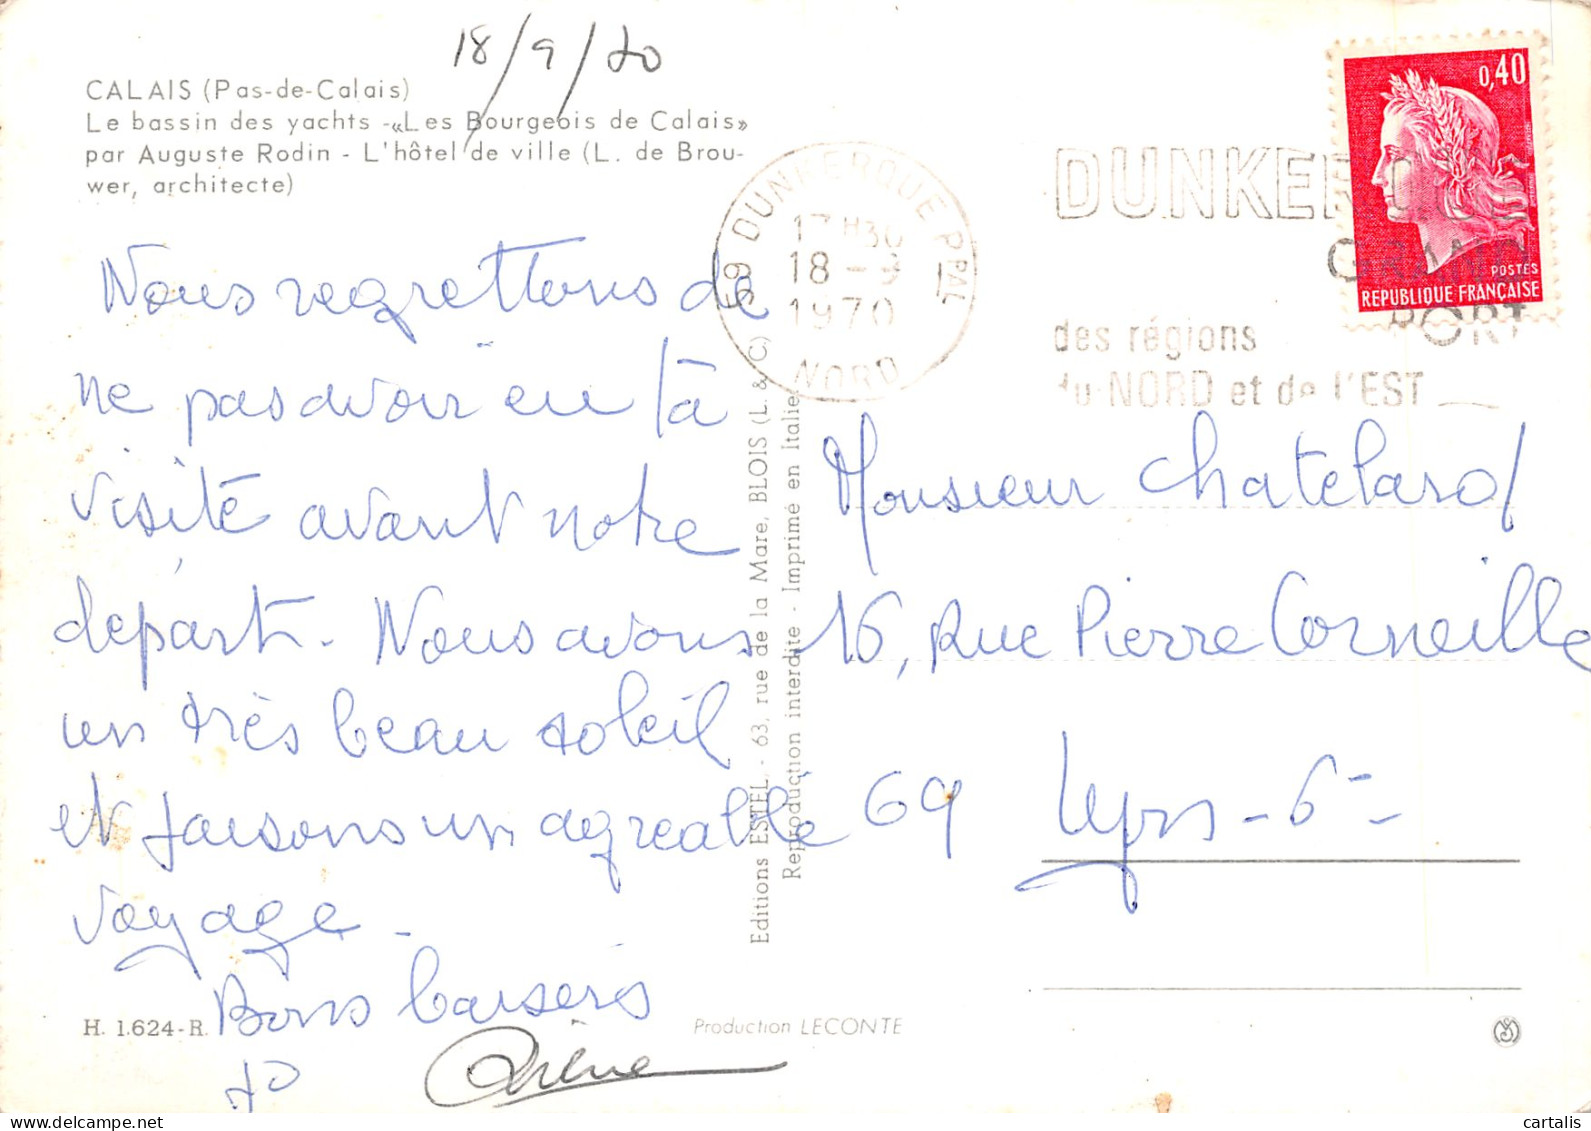 18/9/70
CALAIS (Pas-de-Calais)
Le bassin des yachts -«Les Bourgeois de Calais»
par Auguste Rodin - L'hôtel de ville (L. de Brou-
wer, architecte)
0,40
POSTES
REPUBLIQUE FRANÇAISE
59 DUNKERQUE PPAL
17 H30
18 - 9
1970
NORD
DUNKERQUE
GRAND
PORT
des régions
du NORD et de l'EST
Nous regrettons de
ne pas avoir eu ta
visite avant notre
depart. Nous avons
un très beau soleil
et faisons un agreable
voyage.
Bons baisers
Editions ESTEL, - 63, rue de la Mare, BLOIS (L. & C)
Reproduction interdite - Imprimé en Italie
Monsieur Chatelard
16, Rue Pierre Corneille
69 Lyon - 6e -
H. 1.624-R.
Production LECONTE
cartalis
cartalis.com